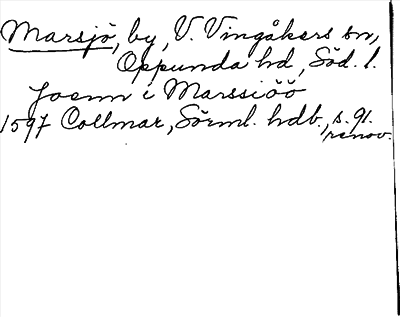 Marsjö, by, V. Vingåkers sn,
Oppunda hd, Söd. l.
Joenn i Marssiöö
1597 Collmar, Sörml. hdb., s. 91.
renov.